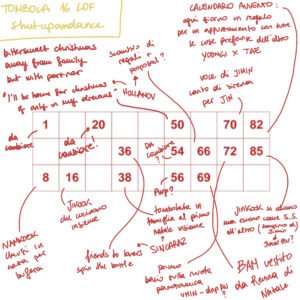 TOMBOLA 16 LOF
shutupandance
bittersweet christmas
away from family
but with partner
"I'll be home for christmas
if only in my dreams"
HOLLANOV
scambio di
regali +
proposal?
CALENDARIO AVVENTO:
ogni giorno un regalo
per un appuntamento con tutte
le cose preferite dell'altro
YOONGI x TAE
voce di JIMIN
canto di sirena
per JIN
da cambiare
da cambiare!
da cambiare?
1 20 50 70 82
36 54 66 72 85
8 16 38 56 69
NAMKOOK
chiusi in
casa per
bufera
JIKOOK
che cucinano
insieme
friends to lovers
spin the bottle
Pwp?
tombolata in
famiglia al primo
natale insieme
SINGRAZ
primo
bacio sulla ruota
panoramica
BAM VESTITO
da Renna di
Natale
JINKOOK si danno
una cuono come S.S.
all'altro